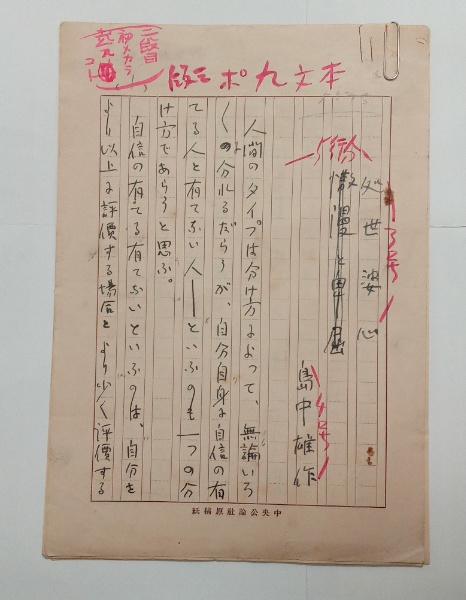 本文九ポ
三段目
5行分
処世婆心
傲慢と卑屈
島中雄作
人間のタイプは分け方によつて、無論いろ
〱に分れるだらうが、自分自身に自信の有
てる人と有てない人――といふのも一つの分
け方であらうと思ふ。
自信の有てる有てないといふのは、自分を
より以上に評價する場合とより少く評價する
中央公論社原稿紙